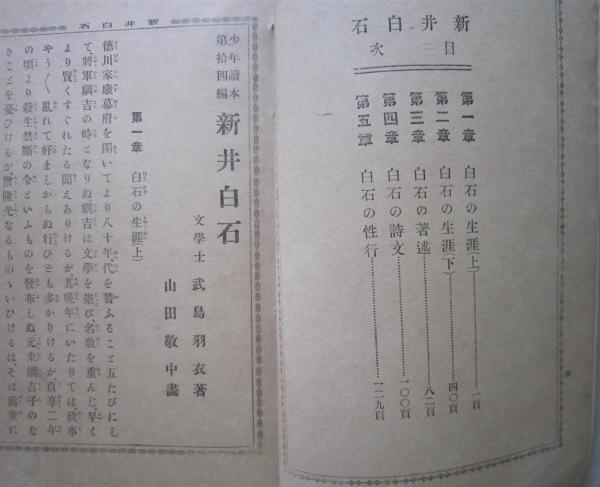 新井白石
目次
第一章 白石の生涯(上)……一頁
第二章 白石の生涯(下)……四〇頁
第三章 白石の著述……八二頁
第四章 白石の詩文……一〇〇頁
第五章 白石の性行……一二九頁
新井白石
少年讀本
第拾四編
新井白石
文學士 武島羽衣著
山田敬中畫
第一章 白石の生涯(上)
德川家康幕府を開いてより八十年、代を替ふること五たびにし
て、將軍綱吉の時となりぬ綱吉は文學を崇び、名敎を重んじ、早く
より賢くすぐれたる聞えありけるが、其晩年にいたりては、政事
やう〱亂れて好ましからぬ行ひども多かりけるが貞享二年
の頃より殺生禁斷の令といふものを發布しぬ元來綱吉子のな
きことを憂ひけるが、僧隆光なるものゝいひけるは、そは前世に